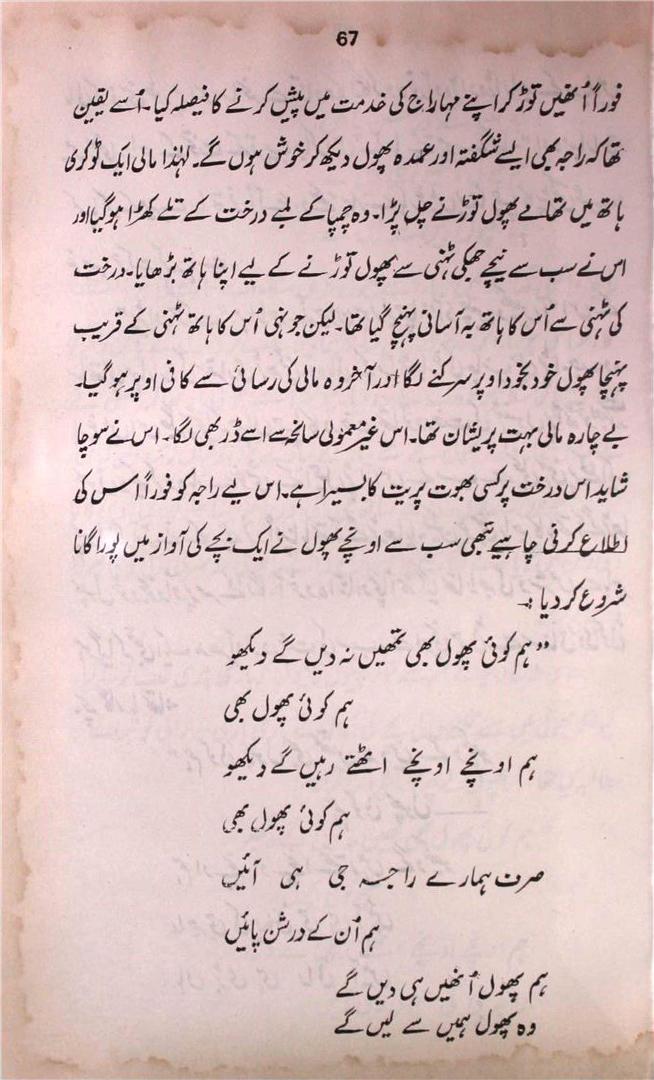 67
فوراً اُنھیں توڑ کر اپنے مہاراج کی خدمت میں پیش کرنے کا فیصلہ کیا۔ اُسے یقین
تھا کہ راجہ بھی ایسے شگفتہ اور عمدہ پھول دیکھ کر خوش ہوں گے۔ لہٰذا مالی ایک ٹوکری
ہاتھ میں تھامے پھول توڑنے چل پڑا۔ وہ چمپا کے لمبے درخت کے تلے کھڑا ہو گیا اور
اس نے سب سے نیچے جھکی ٹہنی سے پھول توڑنے کے لیے اپنا ہاتھ بڑھایا۔ درخت
کی ٹہنی سے اُس کا ہاتھ بہ آسانی پہنچ گیا تھا۔ لیکن جونہی اُس کا ہاتھ ٹہنی کے قریب
پہنچا پھول خود بخود اوپر سرکنے لگا اور آخر وہ مالی کی رسائی سے کافی اوپر ہو گیا۔
بے چارہ مالی بہت پریشان تھا۔ اس غیر معمولی سانحہ سے اسے ڈر بھی لگا۔ اس نے سوچا
شاید اس درخت پر کسی بھوت پریت کا بسیرا ہے۔ اس لیے راجہ کو فوراً اس کی
اطلاع کرنی چاہیے تبھی سب سے اونچے پھول نے ایک بچے کی آواز میں پورا گانا
شروع کر دیا :۔
”ہم کوئی پھول بھی تمھیں نہ دیں گے دیکھو
ہم کوئی پھول بھی
ہم اونچے اونچے اٹھتے رہیں گے دیکھو
ہم کوئی پھول بھی
صرف ہمارے راجہ جی ہی آئیں
ہم اُن کے درشن پائیں
ہم پھول اُنھیں ہی دیں گے
وہ پھول ہمیں سے لیں گے